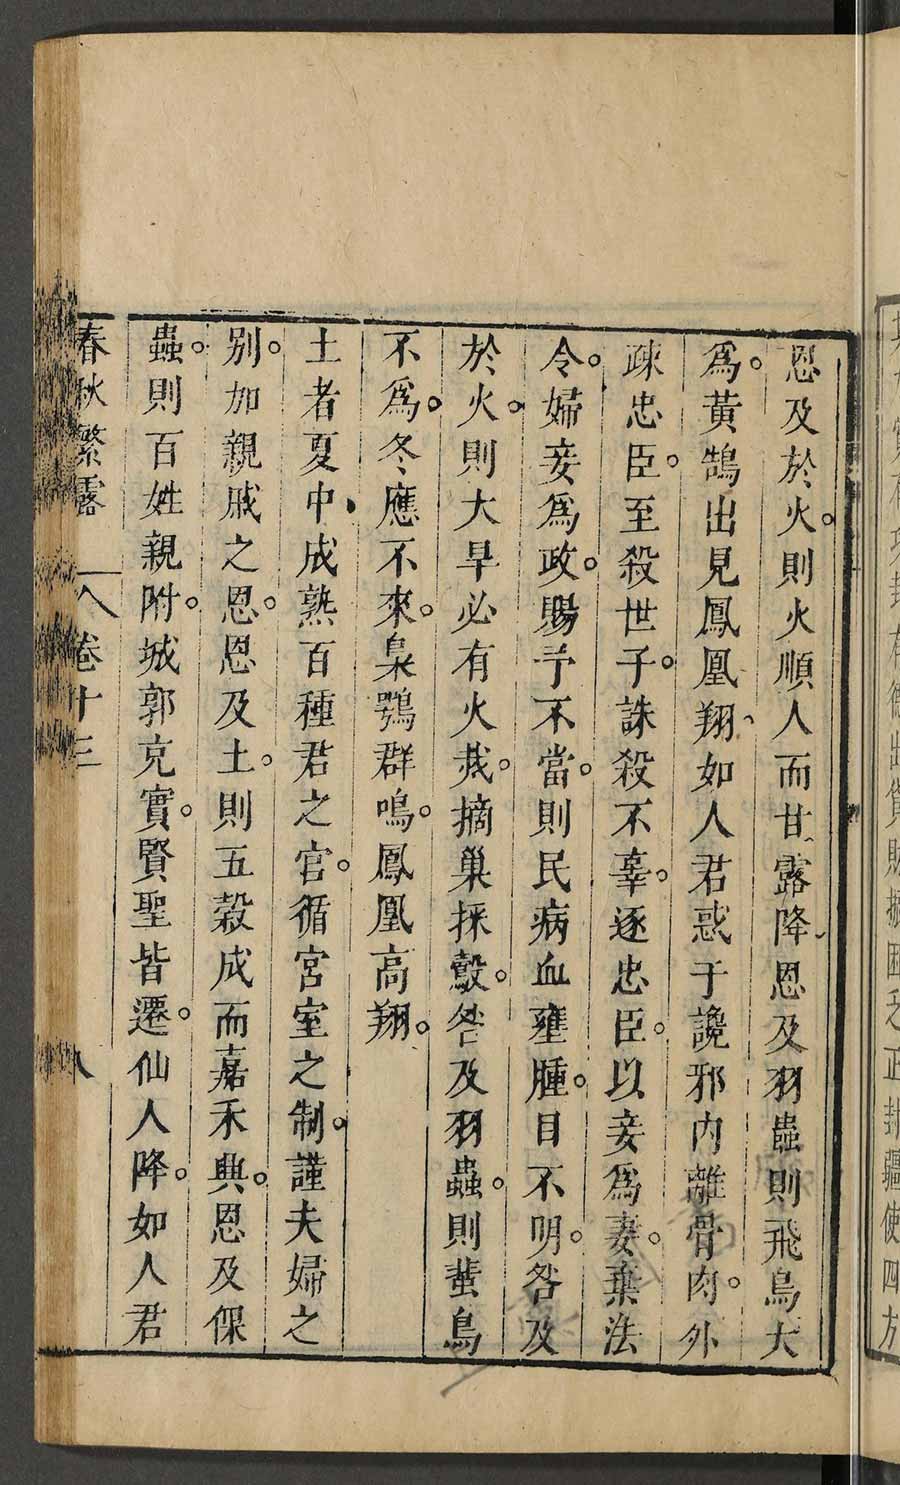 恩及於火則火順人而甘露降恩及羽蟲則飛鳥大
爲黃鵠出見鳳凰翔如人君惑于讒邪內離骨肉外
疎忠臣至殺世子誅殺不辜逐忠臣以妾爲妻棄法
令婦妾爲政賜予不當則民病血壅腫目不明咎及
於火則大旱必有火烖摘巢探鷇咎及羽蟲則蜚鳥
不爲冬應不來梟鴞群鳴鳳凰高翔
土者夏中成熟百種君之官循宮室之制謹夫婦之
別加親戚之恩恩及土則五穀成而嘉禾興恩及倮
蟲則百姓親附城郭充實賢聖皆遷仙人降如人君
春秋繁露 卷十三 八